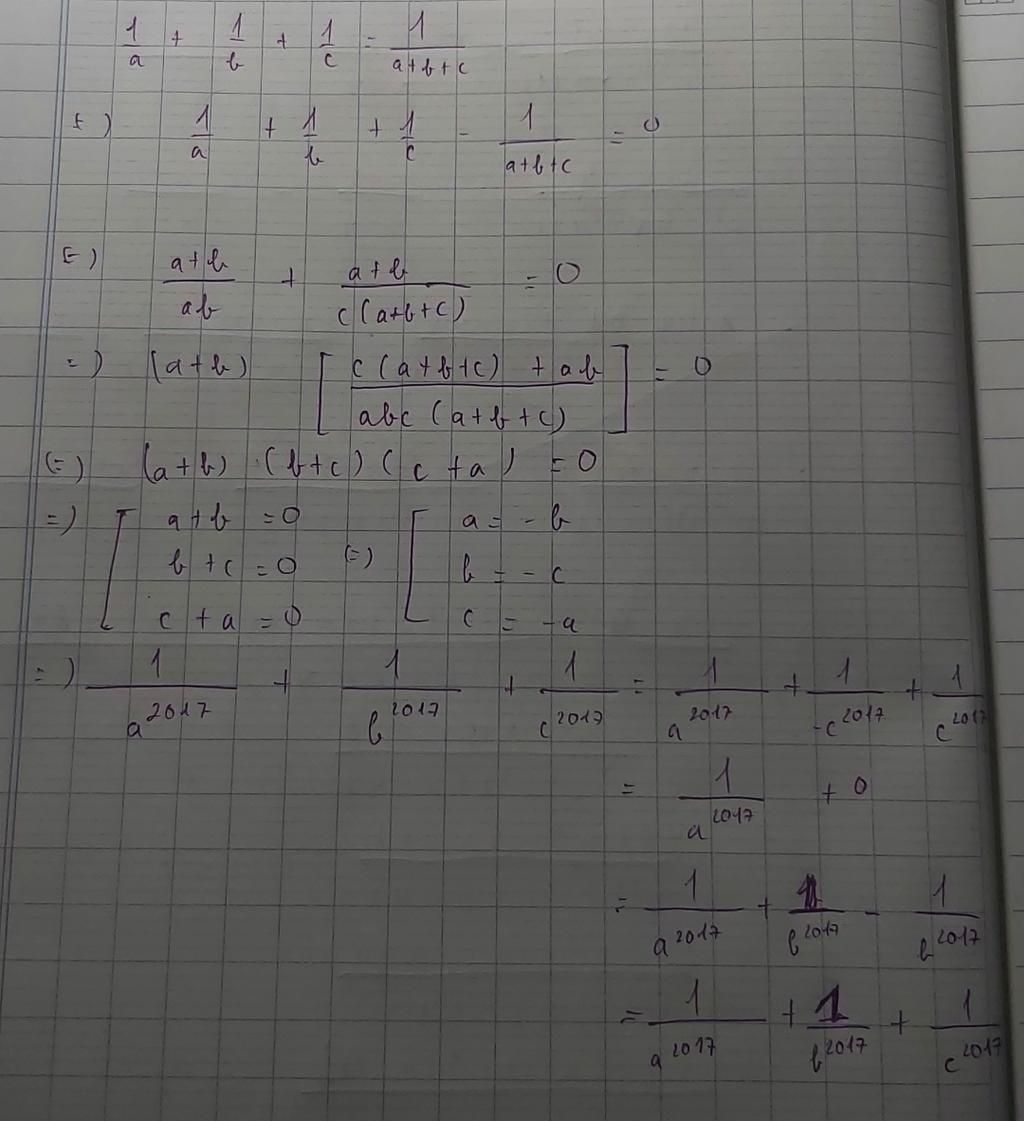 1/a + 1/b + 1/c = 1/(a+b+c)
(=) 1/a + 1/b + 1/c - 1/(a+b+c) = 0
(=) (a+b)/(ab) + (a+b)/(c(a+b+c)) = 0
=) (a+b) [ (c(a+b+c) + ab)/(abc(a+b+c)) ] = 0
(=) (a+b) (b+c) (c+a) = 0
=) [ a+b = 0 [ a = -b
b+c = 0 (=) b = -c
c+a = 0 c = -a
=) 1/a^2017 + 1/b^2017 + 1/c^2017 = 1/a^2017 + 1/-c^2017 + 1/c^2017
= 1/a^2017 + 0
= 1/a^2017 + 1/b^2017 - 1/b^2017
= 1/a^2017 + 1/b^2017 + 1/c^2017